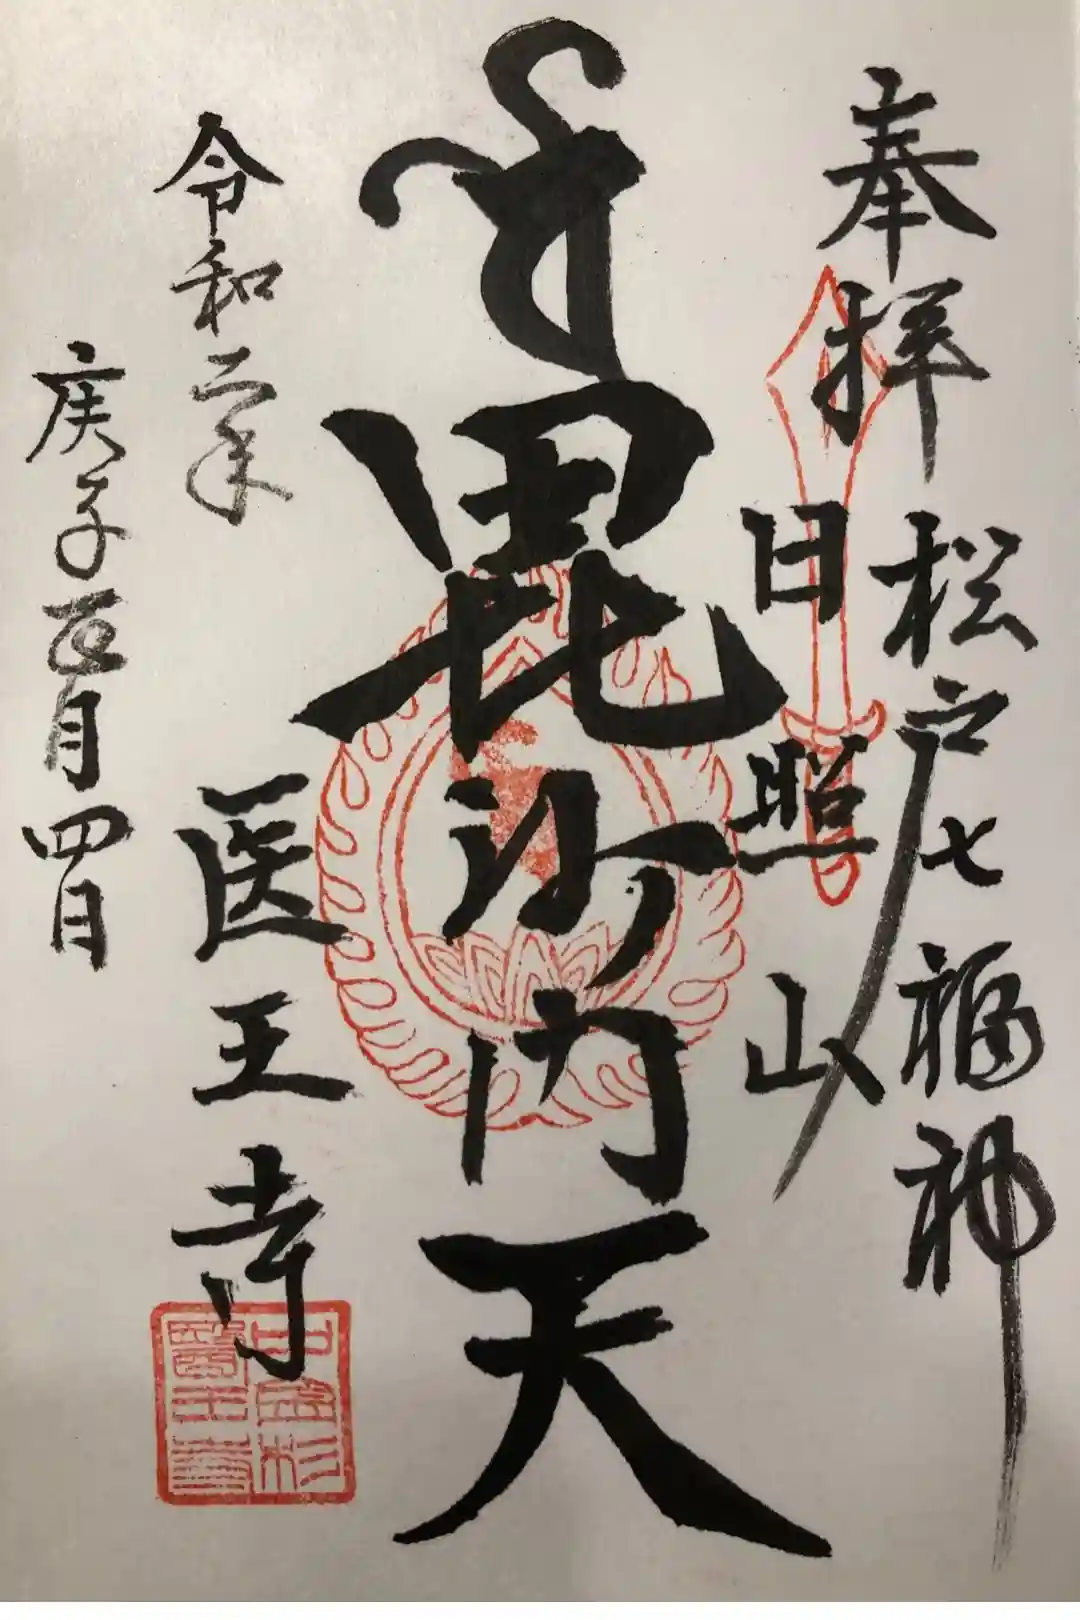 奉拝 松戸七福神
日照山
毘沙門天
医王寺
令和二年
庚子 月四日
中金杉
醫王寺